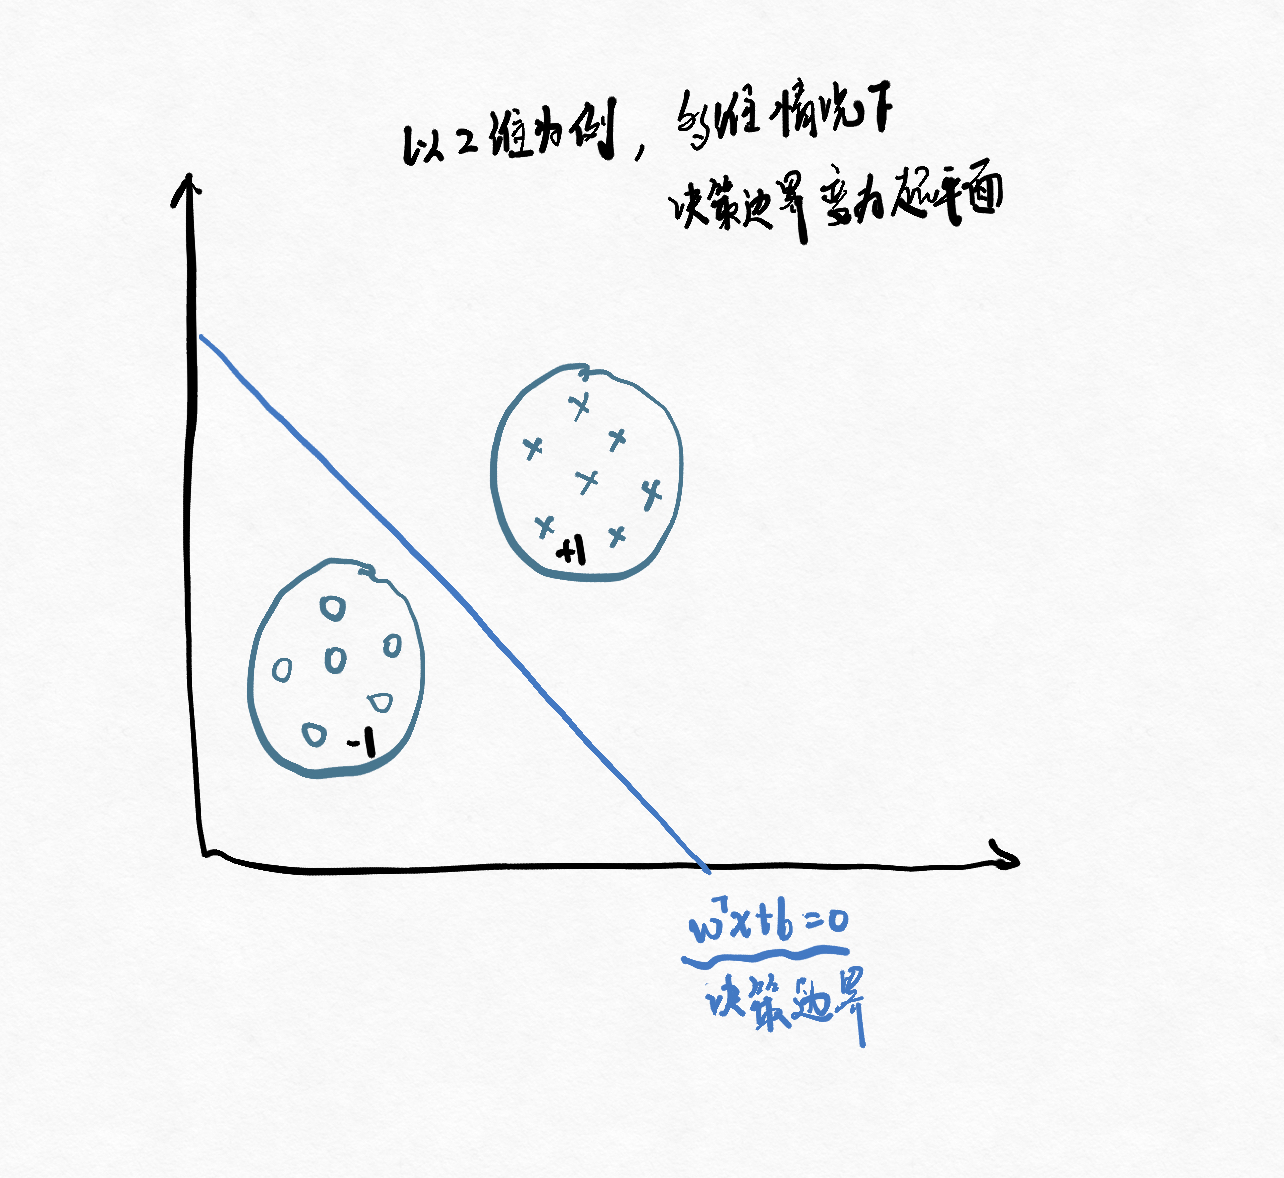 以2维为例，多维情况下
决策边界变为超平面
+1
-1
wᵀx+b=0
决策边界